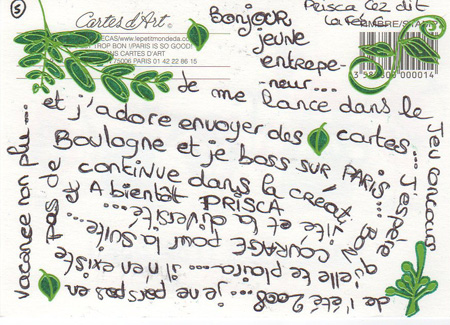 5
Cartes d'Art
TROP BON !/PARIS IS SO GOOD!
CARTES D'ART
75006 PARIS 01 42 22 86 15
Prisca dit
000014
Bonjour
jeune
entrepe-
neur...
je me lance dans le
Jeu concours
de l'été 2008... je ne pars pas en
vacance non plu...
et j'adore envoyer des cartes...
J'espère
qu'elle te plaira... il n'en existe
pas de
Boulogne et je boss SUR PARIS...
BON
COURAGE pour la suite
et
continue dans la créat
ivité et la diversité...
A bientôt PRISCA